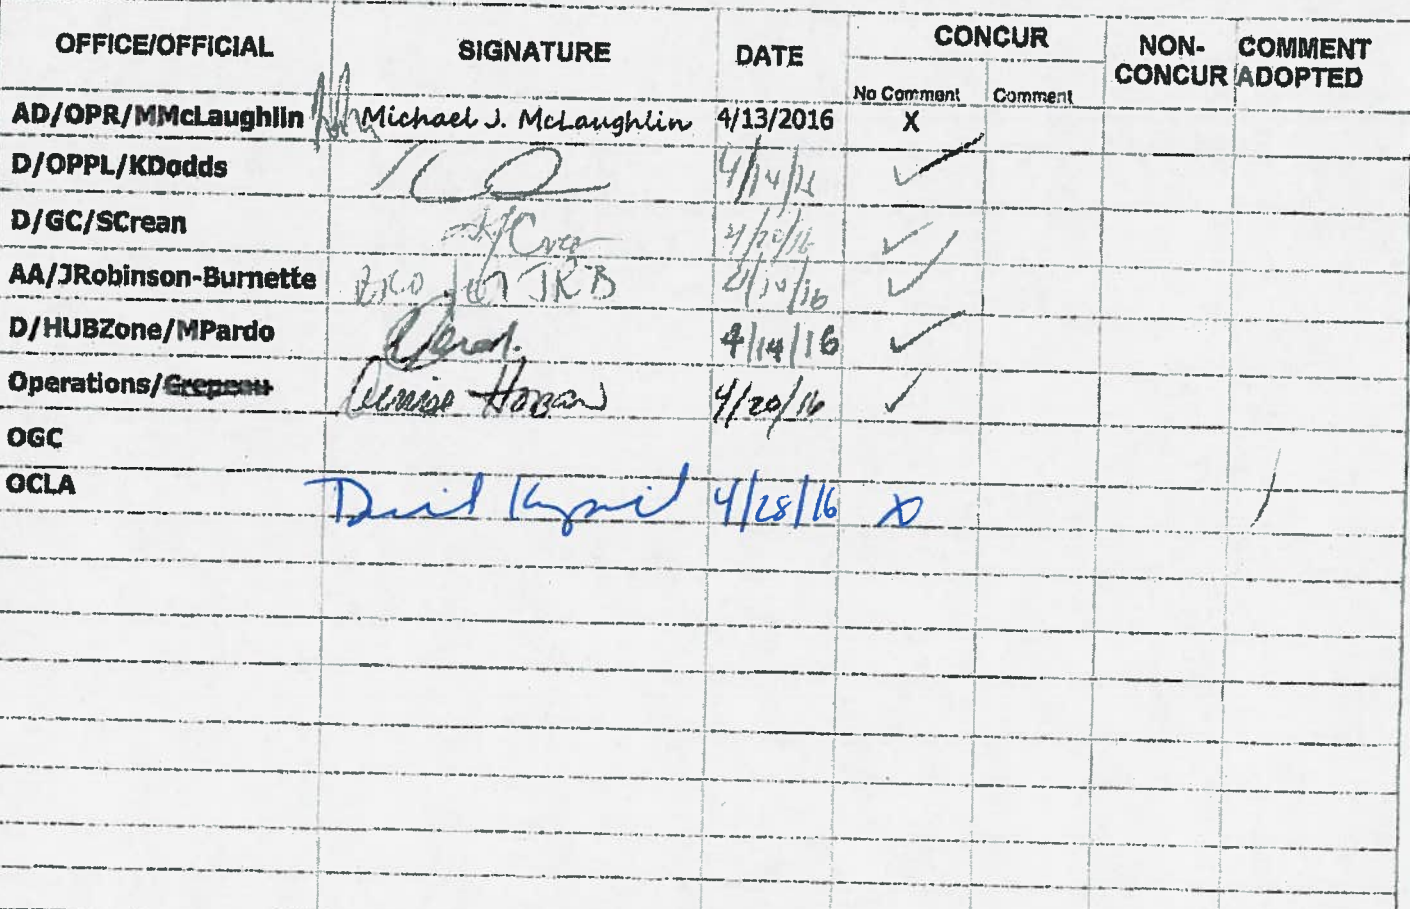 OFFICE/OFFICIAL SIGNATURE DATE CONCUR NON-CONCUR COMMENT ADOPTED
No Comment Comment
AD/OPR/MMcLaughlin Michael J. McLaughlin 4/13/2016 X
D/OPPL/KDodds 4/14/16
D/GC/SCrean 4/20/16
AA/JRobinson-Burnette for JRB
D/HUBZone/MPardo 4/14/16
Operations/ Denise 4/20/16
OGC
OCLA David 4/28/16 X